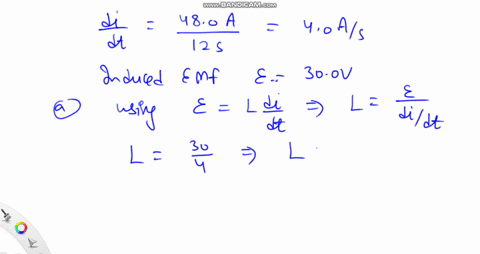 www.BANDICAM.com
di/dt = 48.0 A / 12 s = 4.0 A/s
Induced EMf ε = 30.0V
a) using ε = L di/dt ⇒ L = ε / di/dt
L = 30/4 ⇒ L